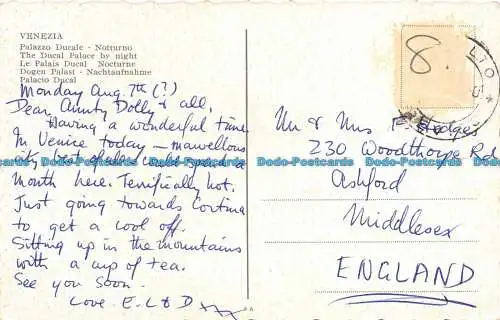 VENEZIA
Palazzo Ducale - Notturno
The Ducal Palace by night
Le Palais Ducal Nocturne
Dogen Palast - Nachtaufnahme
Palacio Ducal
Monday Aug. 7th (?)
Dear Aunty Dolly & all.
Having a wonderful time.
In Venice today – marvellous
city best of all could spend a
month here. Terrifically hot.
Just going towards Cortina
to get a cool off.
Sitting up in the mountains
with a cup of tea.
See you soon.
Love. E. L & D xxx
8.
LIDO
Mr & Mrs Hedges
230 Woodthorpe Rd
Ashford
Middlesex
ENGLAND
Todo-Postcards Todo-Postcards Todo-Postcards Todo-Postcards